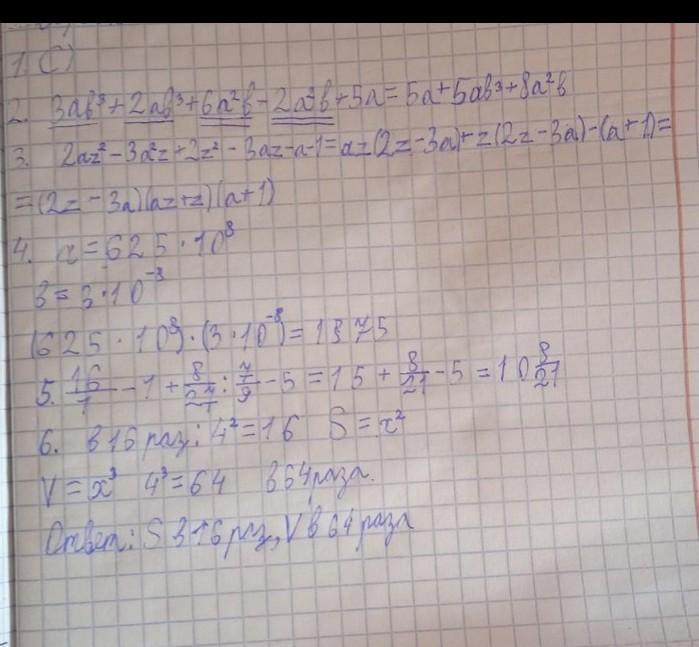 1. C)
2. 3ab³ + 2ab³ + 6a²b - 2a²b + 5a = 5a + 5ab³ + 8a²b
3. 2az² - 3a²z + 2z² - 3az - a - 1 = az(2z - 3a) + z(2z - 3a) - (a + 1) =
= (2z - 3a)(az + z)(a + 1)
4. a = 625 · 10⁸
b = 3 · 10⁻⁸
(625 · 10⁸) · (3 · 10⁻⁸) = 1875
5. 16/1 - 1 + 8/27 : 7/9 - 5 = 15 + 8/21 - 5 = 10 8/21
6. В 16 раз: 4² = 16 S = x²
V = x³ 4³ = 64 В 64 раза.
Ответ: S в 16 раз, V в 64 раза